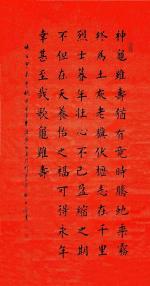 神龜雖壽猶有竟時騰虵乘霧
終爲土灰老驥伏櫪志在千里
烈士暮年壯心不已盈縮之期
不但在天養怡之福可得永年
幸甚至哉歌龜雖壽